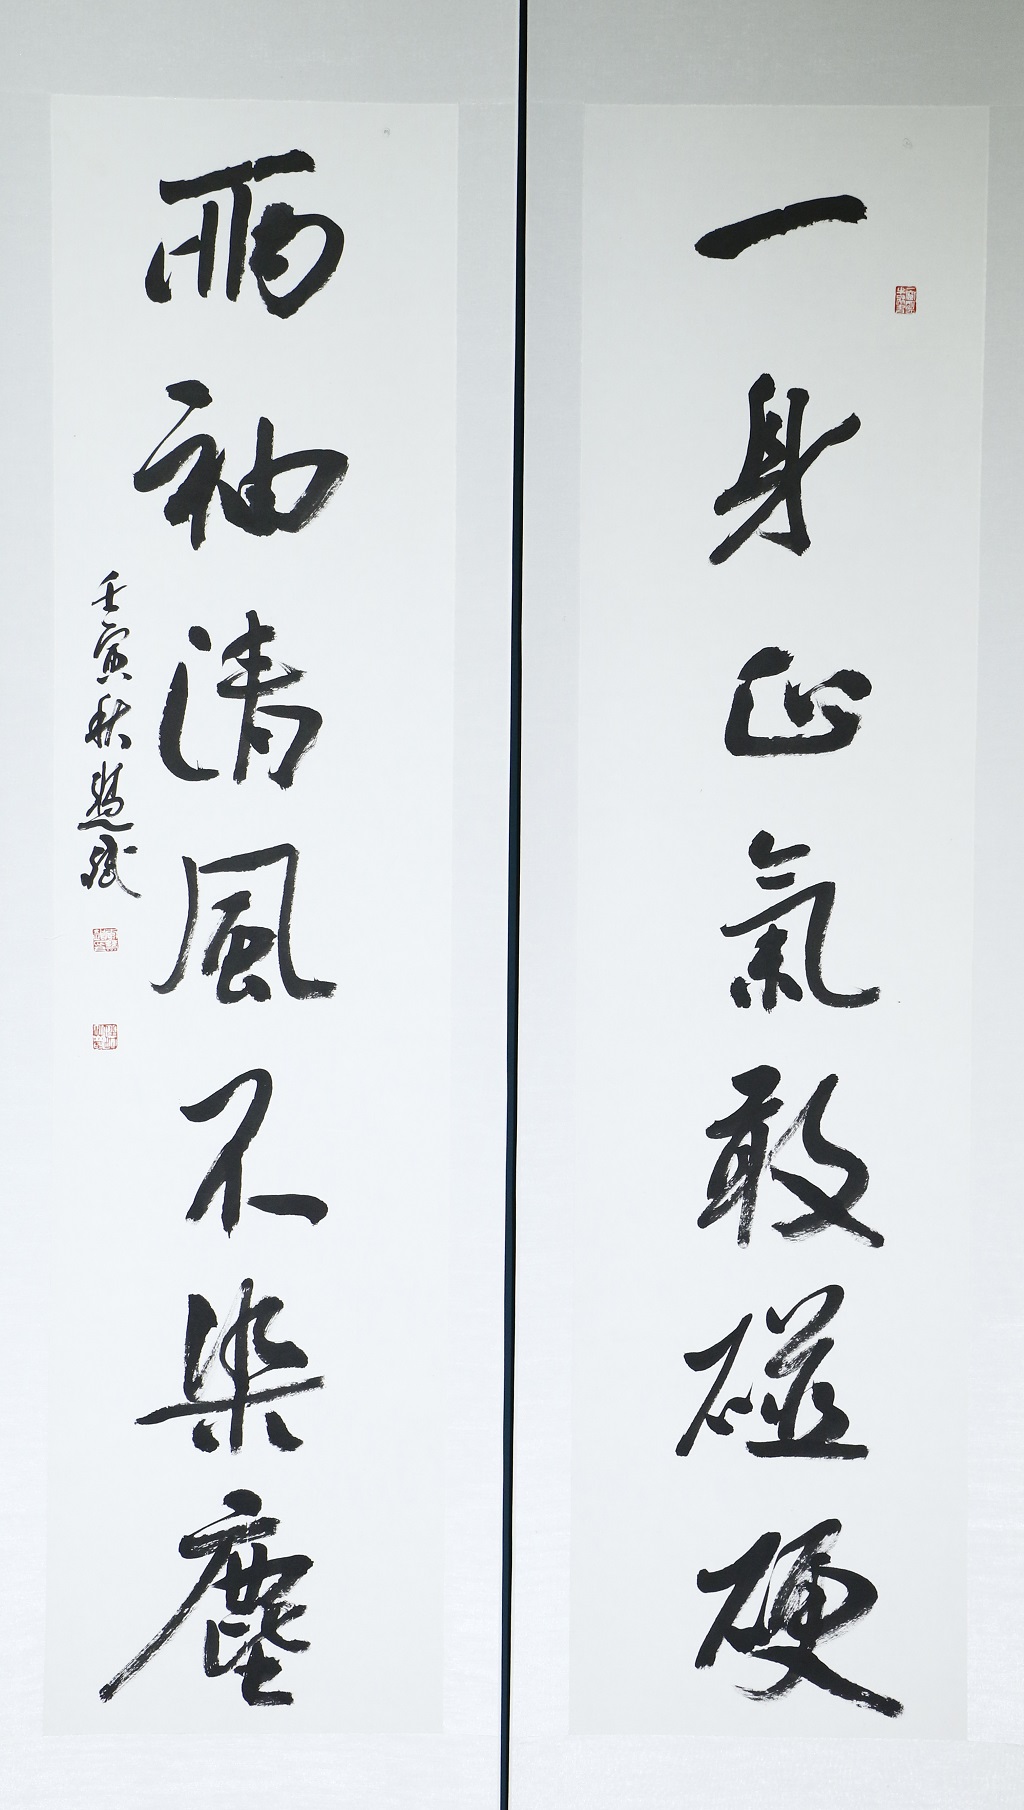 一身正氣敢碰硬
兩袖清風不染塵
壬寅秋慧斌